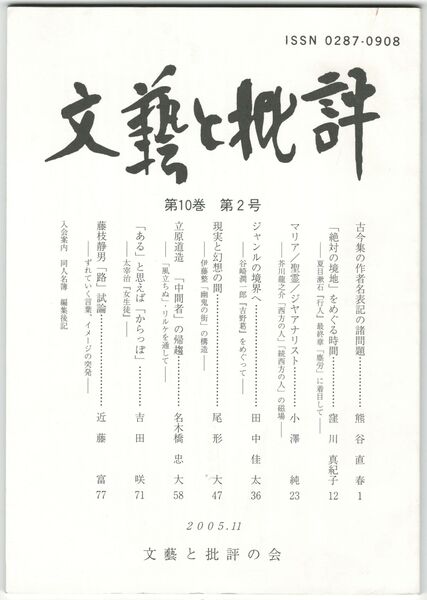 ISSN 0287-0908
文藝と批評
第10巻 第2号
古今集の作者名表記の諸問題…………熊谷直春 1
「絶対の境地」をめぐる時間…………窪川真紀子 12
――夏目漱石『行人』最終章「塵労」に着目して――
マリア／聖霊／ジヤアナリスト…………小澤純 23
――芥川龍之介「西方の人」「続西方の人」の磁場――
ジャンルの境界へ…………田中佳太 36
――谷崎潤一郎『吉野葛』をめぐって――
現実と幻想の間…………尾形大 47
――伊藤整「幽鬼の街」の構造――
立原道造 「中間者」の帰趨…………名木橋忠大 58
――「風立ちぬ」・リルケを通して――
「ある」と思えば「からっぽ」…………吉田咲 71
太宰治『女生徒』――
藤枝静男「路」試論…………近藤富 77
――ずれていく言葉、イメージの突発――
入会案内 同人名簿 編集後記
2005.11
文藝と批評の会